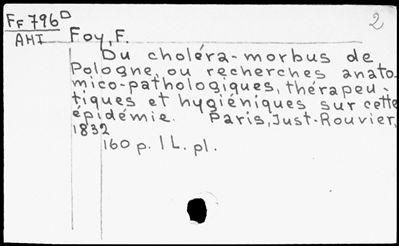 FF 796D
2
AHI
Foy, F.
Du choléra-morbus de
Pologne, ou recherches anato-
mico-pathologiques, thérapeu-
tiques et hygiéniques sur cette
épidémie. Paris, Just-Rouvier,
1832
160 p. 1 L. pl.